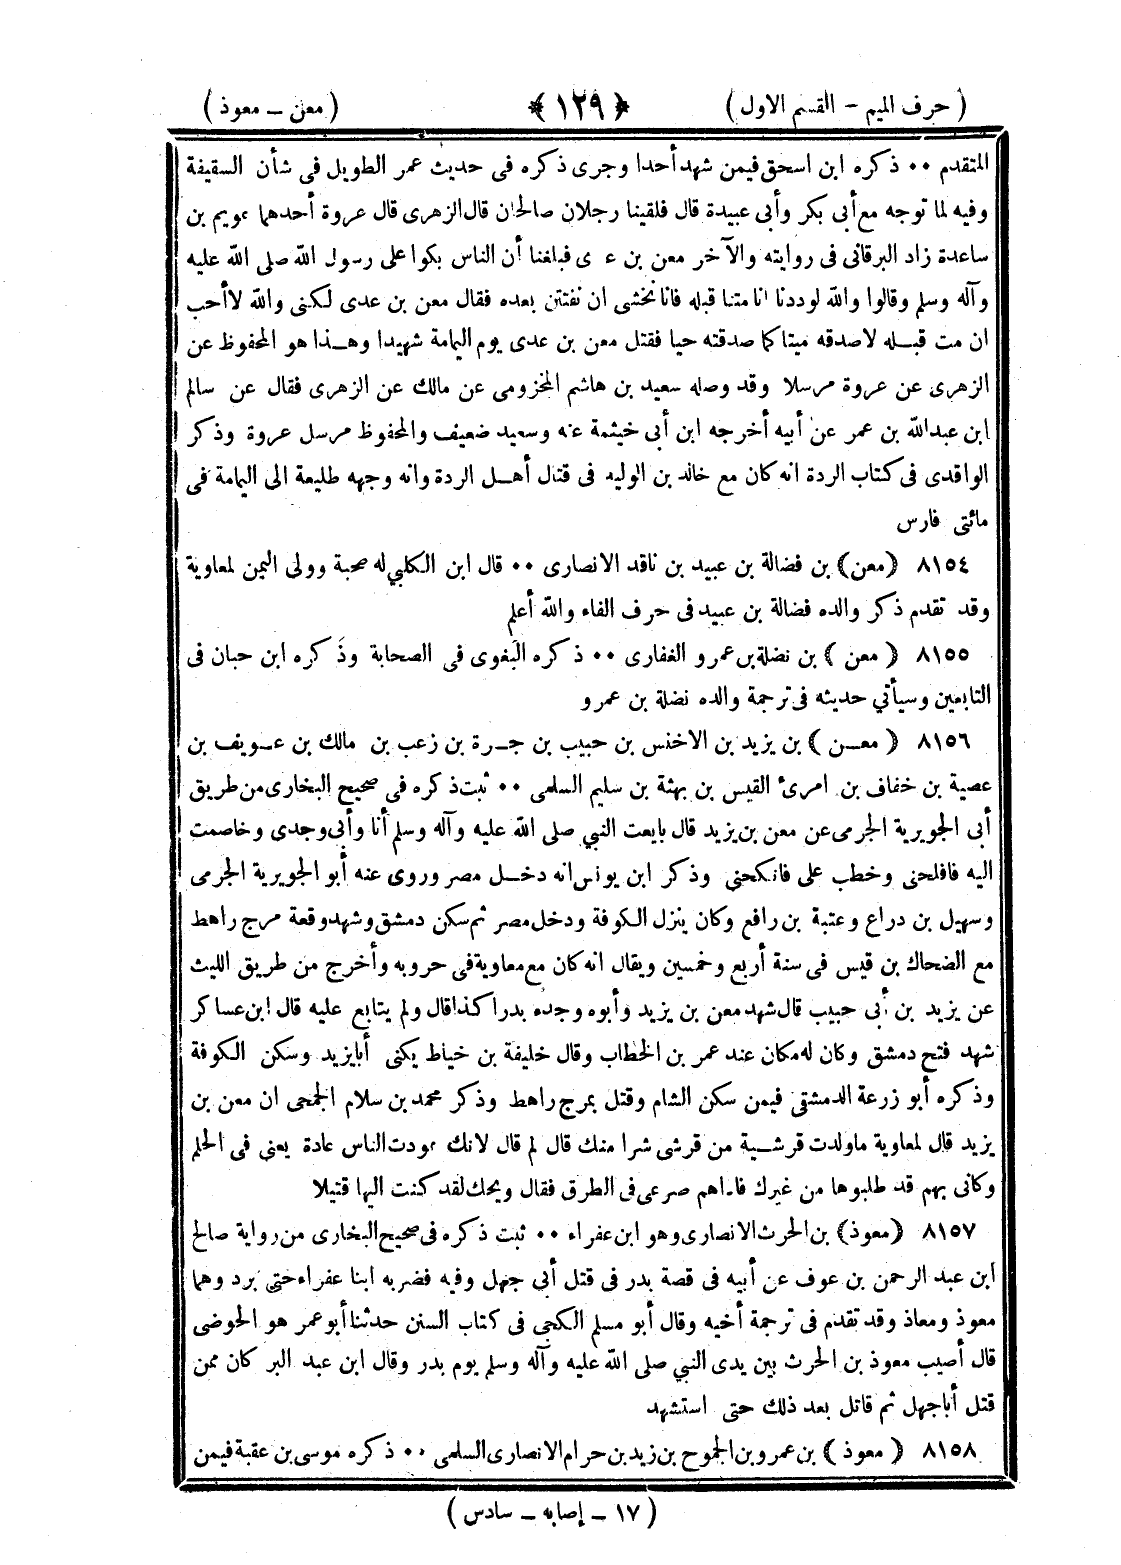 ( حرف الميم – القسم الاول ) ﴿ ١٢٩ ﴾ ( معن – معوذ )
المتقدم ٠٠ ذكره ابن اسحق فيمن شهد أحدا وجرى ذكره فى حديث عمر الطويل فى شأن السقيفة
وفيه لما توجه مع أبى بكر وأبى عبيدة قال فلقينا رجلان صالحان قال الزهرى قال عروة أحدهما عويم بن
ساعدة زاد البرقانى فى روايته والآخر معن بن عدى فبلغنا أن الناس بكوا على رسول الله صلى الله عليه
وآله وسلم وقالوا والله لوددنا انا متنا قبله فانا نخشى ان نفتتن بعده فقال معن بن عدى لكنى والله لا أحب
ان مت قبله لاصدقه ميتا كما صدقته حيا فقتل معن بن عدى يوم اليمامة شهيدا وهذا هو المحفوظ عن
الزهرى عن عروة مرسلا وقد وصله سعيد بن هاشم المخزومى عن مالك عن الزهرى فقال عن سالم
ابن عبدالله بن عمر عن أبيه أخرجه ابن أبى خيثمة عنه وسعيد ضعيف والمحفوظ مرسل عروة وذكر
الواقدى فى كتاب الردة انه كان مع خالد بن الوليد فى قتال أهل الردة وانه وجهه طليعة الى اليمامة فى
مائتى فارس
٨١٥٤ ﴿معن﴾ بن فضالة بن عبيد بن ناقد الانصارى ٠٠ قال ابن الكلبي له صحبة وولى اليمن لمعاوية
وقد تقدم ذكر والده فضالة بن عبيد فى حرف الفاء والله أعلم
٨١٥٥ ﴿ معن ﴾ بن نضلة بن عمرو الغفارى ٠٠ ذكره البغوى فى الصحابة وذكره ابن حبان فى
التابعين وسيأتي حديثه فى ترجمة والده نضلة بن عمرو
٨١٥٦ ﴿ معن ﴾ بن يزيد بن الاخنس بن حبيب بن جرة بن زعب بن مالك بن عويف بن
عصية بن خفاف بن امرئ القيس بن بهثة بن سليم السلمى ٠٠ ثبت ذكره فى صحيح البخارى من طريق
أبى الجويرية الجرمى عن معن بن يزيد قال بايعت النبي صلى الله عليه وآله وسلم أنا وأبى وجدى وخاصمت
اليه فافلحنى وخطب على فانكحنى وذكر ابن يونس انه دخل مصر وروى عنه أبو الجويرية الجرمى
وسهيل بن دراع وعتبة بن رافع وكان ينزل الكوفة ودخل مصر ثم سكن دمشق وشهد وقعة مرج راهط
مع الضحاك بن قيس فى سنة أربع وخمسين ويقال انه كان مع معاوية فى حروبه وأخرج من طريق الليث
عن يزيد بن أبى حبيب قال شهد معن بن يزيد وأبوه وجده بدرا كذا قال ولم يتابع عليه قال ابن عساكر
شهد فتح دمشق وكان له مكان عند عمر بن الخطاب وقال خليفة بن خياط يكنى أبايزيد وسكن الكوفة
وذكره أبو زرعة الدمشقى فيمن سكن الشام وقتل بمرج راهط وذكر محمد بن سلام الجمحى ان معن بن
يزيد قال لمعاوية ماولدت قرشية من قرشى شرا منك قال لم قال لانك عودت الناس عادة يعنى فى الحلم
وكانى بهم قد طلبوها من غيرك فاذاهم صرعى فى الطرق فقال ويحك لقد كنت اليها قتيلا
٨١٥٧ ﴿معوذ﴾ بن الحرث الانصارى وهو ابن عفراء ٠٠ ثبت ذكره فى صحيح البخارى من رواية صالح
ابن عبد الرحمن بن عوف عن أبيه فى قصة بدر فى قتل أبي جهل وفيه فضربه ابنا عفراء حتى برد وهما
معوذ ومعاذ وقد تقدم فى ترجمة أخيه وقال أبو مسلم الكجى فى كتاب السنن حدثنا أبو عمر هو الحوضى
قال أصيب معوذ بن الحرث بين يدى النبي صلى الله عليه وآله وسلم يوم بدر وقال ابن عبد البر كان ممن
قتل أباجهل ثم قاتل بعد ذلك حتى استشهد
٨١٥٨ ﴿ معوذ ﴾ بن عمرو بن الجموح بن زيد بن حرام الانصارى السلمى ٠٠ ذكره موسى بن عقبة فيمن
( ١٧ – إصابه – سادس )